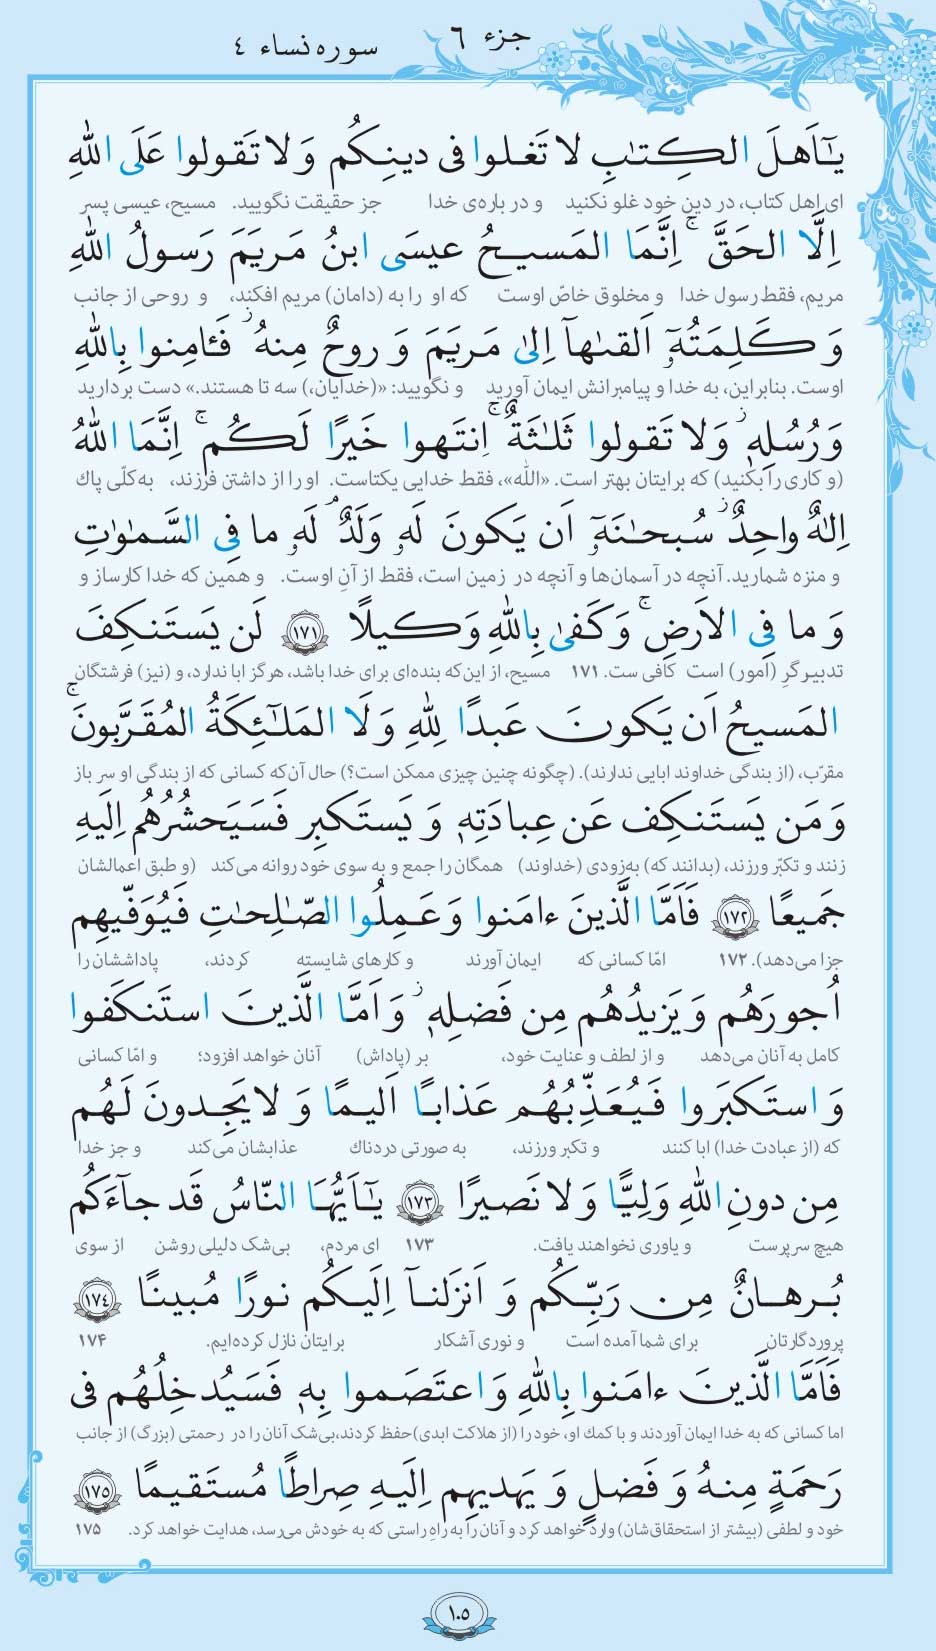 جزء ۶
سوره نساء ۴
يٰٓاَهلَ الكِتٰبِ لا تَغلوا فى دينِكُم وَ لا تَقولوا عَلَى اللّٰهِ
ای اهل کتاب، در دین خود غلو نکنید و در باره‌ی خدا جز حقیقت نگویید. مسیح، عیسی پسر
اِلَّا الحَقَّ ۚ اِنَّمَا المَسيحُ عيسَى ابنُ مَريَمَ رَسولُ اللّٰهِ
مریم، فقط رسول خدا و مخلوق خاصّ اوست که او را به (دامان) مریم افکند، و روحی از جانب
وَ كَلِمَتُهُٓ اَلقٰىهآ اِلىٰ مَريَمَ وَ روحٌ مِنهُ ۖ فَـٔامِنوا بِاللّٰهِ
اوست. بنابراین، به خدا و پیامبرانش ایمان آورید و نگویید: «(خدایان،) سه تا هستند.» دست بردارید
وَ رُسُلِهٖ ۖ وَ لا تَقولوا ثَلٰثَةٌ ۚ اِنتَهوا خَيرًا لَكُم ۚ اِنَّمَا اللّٰهُ
(و کاری را بکنید) که برایتان بهتر است. «اللّٰه»، فقط خدایی یکتاست. او را از داشتن فرزند، به‌کلّی پاك
اِلٰهٌ واحِدٌ ۖ سُبحٰنَهُٓ اَن يَكونَ لَهُ وَلَدٌ ۘ لَهُ ما فِى السَّمٰوٰتِ
و منزه شمارید. آنچه در آسمان‌ها و آنچه در زمین است، فقط از آنِ اوست. و همین که خدا کارساز و
وَ ما فِى الاَرضِ ۚ وَ كَفىٰ بِاللّٰهِ وَكيلًا ۱۷۱ لَن يَستَنكِفَ
تدبیرگرِ (امور) است کافی ست. ۱۷۱ مسیح، از این‌که بنده‌ای برای خدا باشد، هرگز ابا ندارد، و (نیز) فرشتگان
المَسيحُ اَن يَكونَ عَبدًا لِلّٰهِ وَ لَا المَلٰٓئِكَةُ المُقَرَّبونَ ۚ
مقرّب، (از بندگی خداوند ابایی ندارند). (چگونه چنین چیزی ممکن است؟) حال آن‌که کسانی که از بندگی او سر باز
وَ مَن يَستَنكِف عَن عِبادَتِهٖ وَ يَستَكبِر فَسَيَحشُرُهُم اِلَيهِ
زنند و تکبّر ورزند، (بدانند که) به‌زودی (خداوند) همگان را جمع و به سوی خود روانه می‌کند (و طبق اعمالشان
جَميعًا ۱۷۲ فَاَمَّا الَّذينَ ءامَنوا وَ عَمِلُوا الصّٰلِحٰتِ فَيُوَفّيهِم
جزا می‌دهد). ۱۷۲ امّا کسانی که ایمان آوردند و کارهای شایسته کردند، پاداششان را
اُجورَهُم وَ يَزيدُهُم مِن فَضلِهٖ ۖ وَ اَمَّا الَّذينَ استَنكَفوا
کامل به آنان می‌دهد و از لطف و عنایت خود، بر (پاداش) آنان خواهد افزود؛ و امّا کسانی
وَ استَكبَروا فَيُعَذِّبُهُم عَذابًا اَليمًا وَ لا يَجِدونَ لَهُم
که (از عبادت خدا) ابا کنند و تکبر ورزند، به صورتی دردناك عذابشان می‌کند و جز خدا
مِن دونِ اللّٰهِ وَلِيًّا وَ لا نَصيرًا ۱۷۳ يٰٓاَيُّهَا النّاسُ قَد جآءَكُم
هیچ سرپرست و یاوری نخواهند یافت. ۱۷۳ ای مردم، بی‌شک دلیلی روشن از سوی
بُرهانٌ مِن رَبِّكُم وَ اَنزَلنآ اِلَيكُم نورًا مُبينًا ۱۷۴
پروردگارتان برای شما آمده است و نوری آشکار برایتان نازل کرده‌ایم. ۱۷۴
فَاَمَّا الَّذينَ ءامَنوا بِاللّٰهِ وَ اعتَصَموا بِهٖ فَسَيُدخِلُهُم فى
اما کسانی که به خدا ایمان آوردند و با کمك او، خود را (از هلاکت ابدی) حفظ کردند، بی‌شک آنان را در رحمتی (بزرگ) از جانب
رَحمَةٍ مِنهُ وَ فَضلٍ وَ يَهديهِم اِلَيهِ صِراطًا مُستَقيمًا ۱۷۵
خود و لطفی (بیشتر از استحقاق‌شان) وارد خواهد کرد و آنان را به راهِ راستی که به خودش می‌رسد، هدایت خواهد کرد. ۱۷۵
۱۰۵